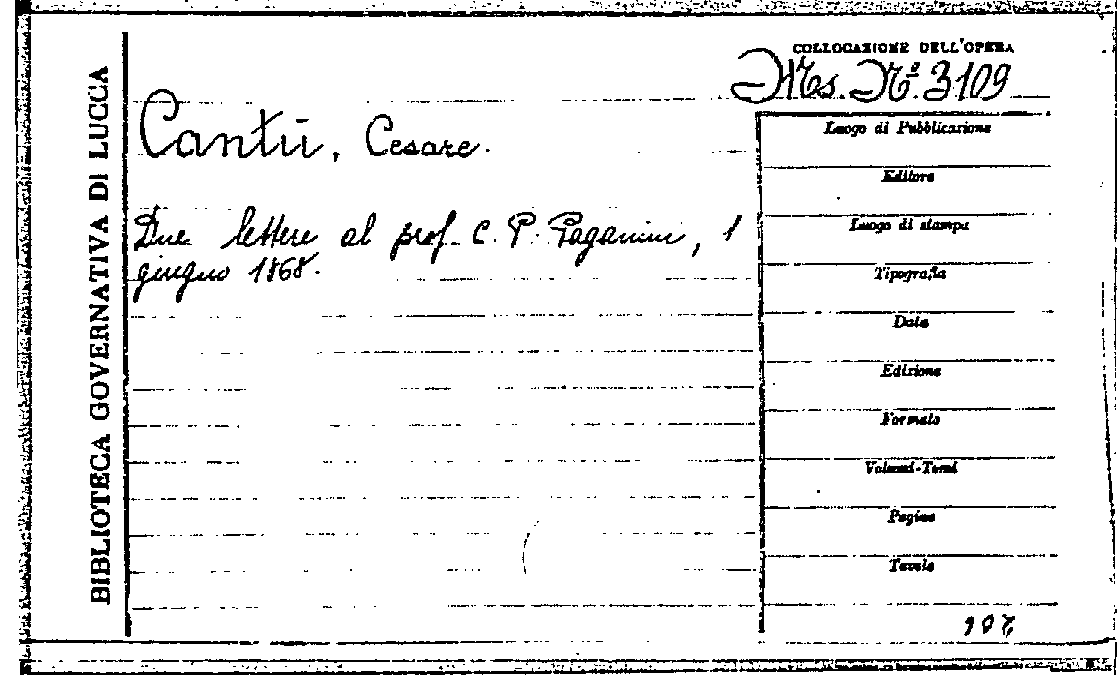 BIBLIOTECA GOVERNATIVA DI LUCCA
COLLOCAZIONE DELL'OPERA
Ms. Nº 3109
Cantù, Cesare.
Due lettere al prof. C. P. Paganini, 1
giugno 1868.
Luogo di Pubblicazione
Editore
Luogo di stampa
Tipografia
Data
Edizione
Formato
Volumi-Tomi
Pagine
Tavole